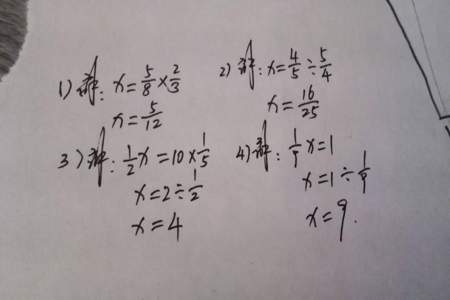 1) 解: x=5/8×2/3
x=5/12
2) 解: x=4/5÷5/4
x=16/25
3) 解: 1/2x=10×1/5
x=2÷1/2
x=4
4) 解: 1/9x=1
x=1÷1/9
x=9.